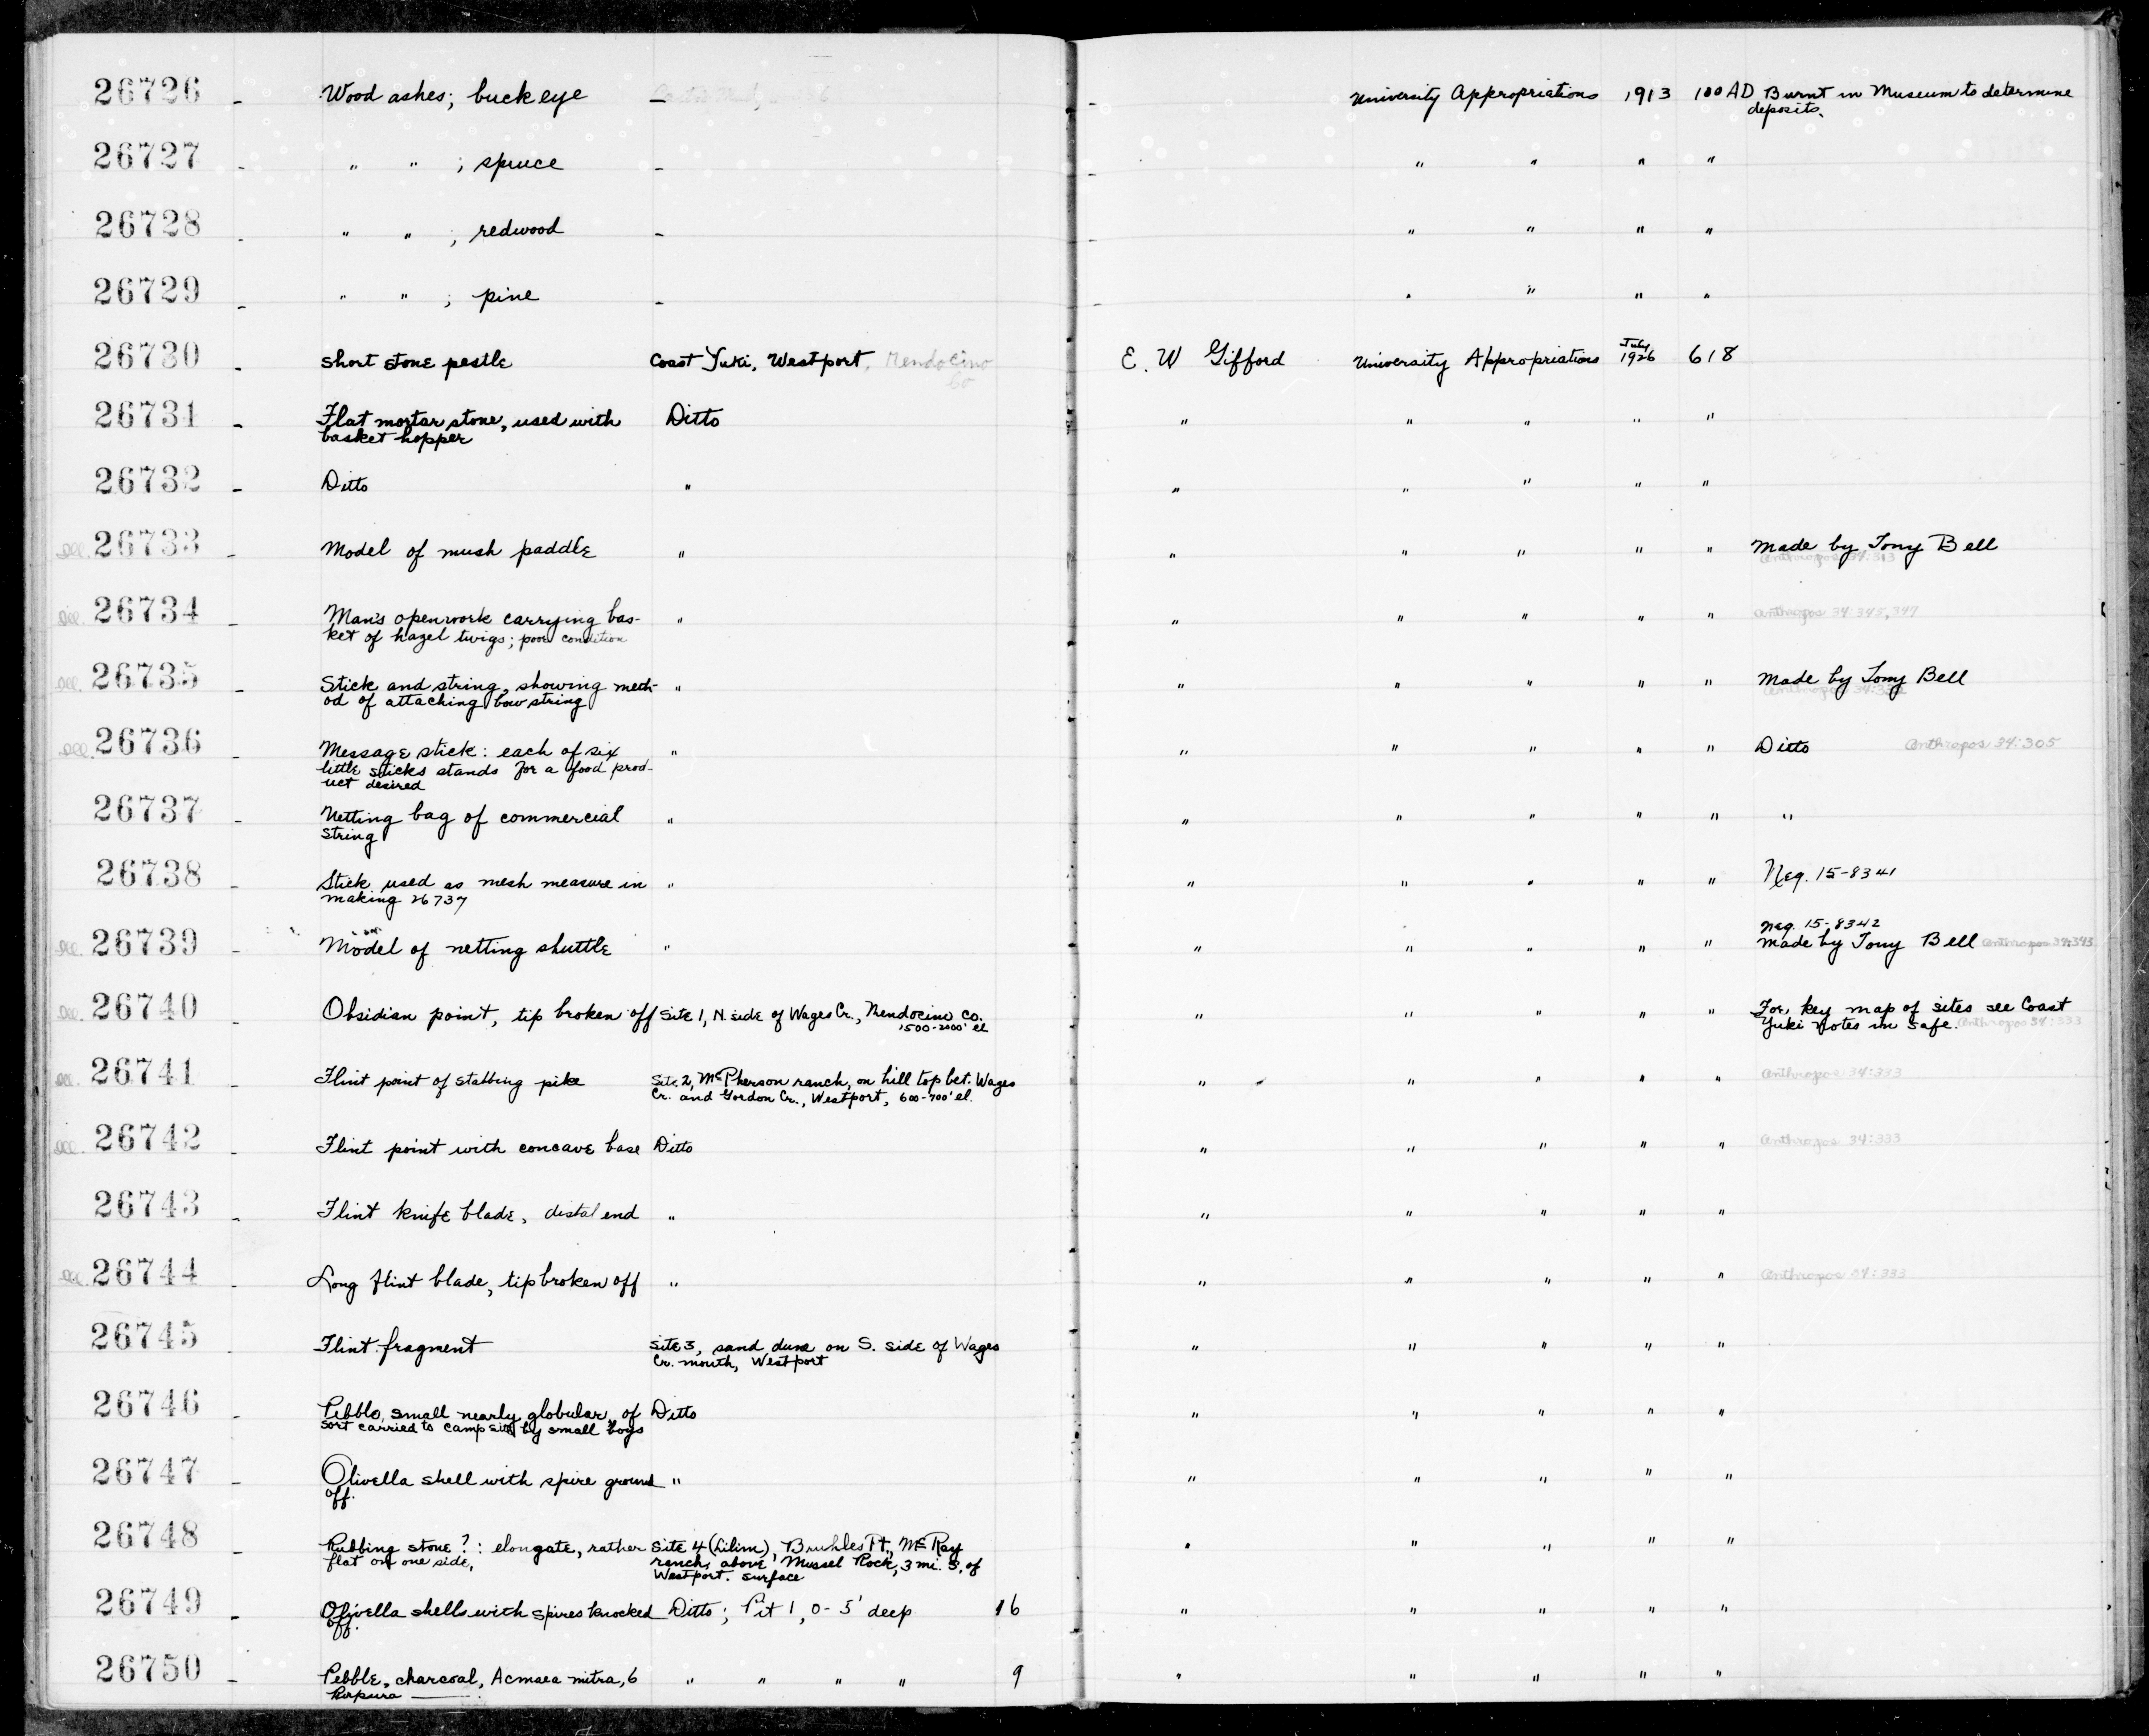 26726 - Wood ashes; buckeye - - University Appropriations 1913 100AD Burnt in Museum to determine
deposits.
26727 - " " ; spruce - - " " " "
26728 - " " ; redwood - - " " " "
26729 - " " ; pine - - " " " "
26730 - Short stone pestle Coast Yuki, Westport, Mendocino Co E. W Gifford University Appropriations July 1926 618
26731 - Flat mortar stone, used with Ditto " " " " "
basket hopper
26732 - Ditto " " " " " "
Ill. 26733 - Model of mush paddle " " " " " " Made by Tony Bell
Anthropos 34:313
Ill. 26734 - Man's openwork carrying bas- " " " " " " Anthropos 34:345, 347
ket of hazel twigs; poor condition
Ill. 26735 - Stick and string, showing meth- " " " " " " Made by Tony Bell
od of attaching bow string Anthropos
Ill. 26736 - Message stick: each of six " " " " " " Ditto Anthropos 34:305
little sticks stands for a food prod-
uct desired
26737 - Netting bag of commercial " " " " " " "
string
26738 - Stick used as mesh measure in " " " " " " Neg. 15-8341
making 26737
Neg. 15-8342
Ill. 26739 - Model of netting shuttle " " " " " " Made by Tony Bell Anthropos 34:343
Ill. 26740 - Obsidian point, tip broken off Site 1, N. side of Wages Cr., Mendocino Co. " " " " " For key map of sites see Coast
1500-2000' el Yuki Notes in safe. Anthropos 34:333
Ill. 26741 - Flint point of stabbing pike Site 2, McPherson ranch, on hill top bet. Wages " " " " " Anthropos 34:333
Cr. and Gordon Cr., Westport, 600-700' el.
Ill. 26742 - Flint point with concave base Ditto " " " " " Anthropos 34:333
26743 - Flint knife blade, distal end " " " " " "
Ill. 26744 - Long flint blade, tip broken off " " " " " " Anthropos 34:333
26745 - Flint fragment Site 3, sand dune on S. side of Wages " " " " "
Cr. mouth, Westport
26746 - Pebble, small nearly globular, of Ditto " " " " "
sort carried to camp site by small boys
26747 - Olivella shell with spire ground " " " " " "
off.
26748 - Rubbing stone?: elongate, rather Site 4 (Lilim), Bruhles Pt., McRay " " " " "
flat on one side, ranch, above Mussel Rock, 3 mi. S. of
Westport. surface
26749 - Olivella shells with spires knocked Ditto; Pit 1, 0-5' deep 16 " " " " "
off.
26750 - Pebble, charcoal, Acmaea mitra, 6 " " " " 9 " " " " "
Purpura